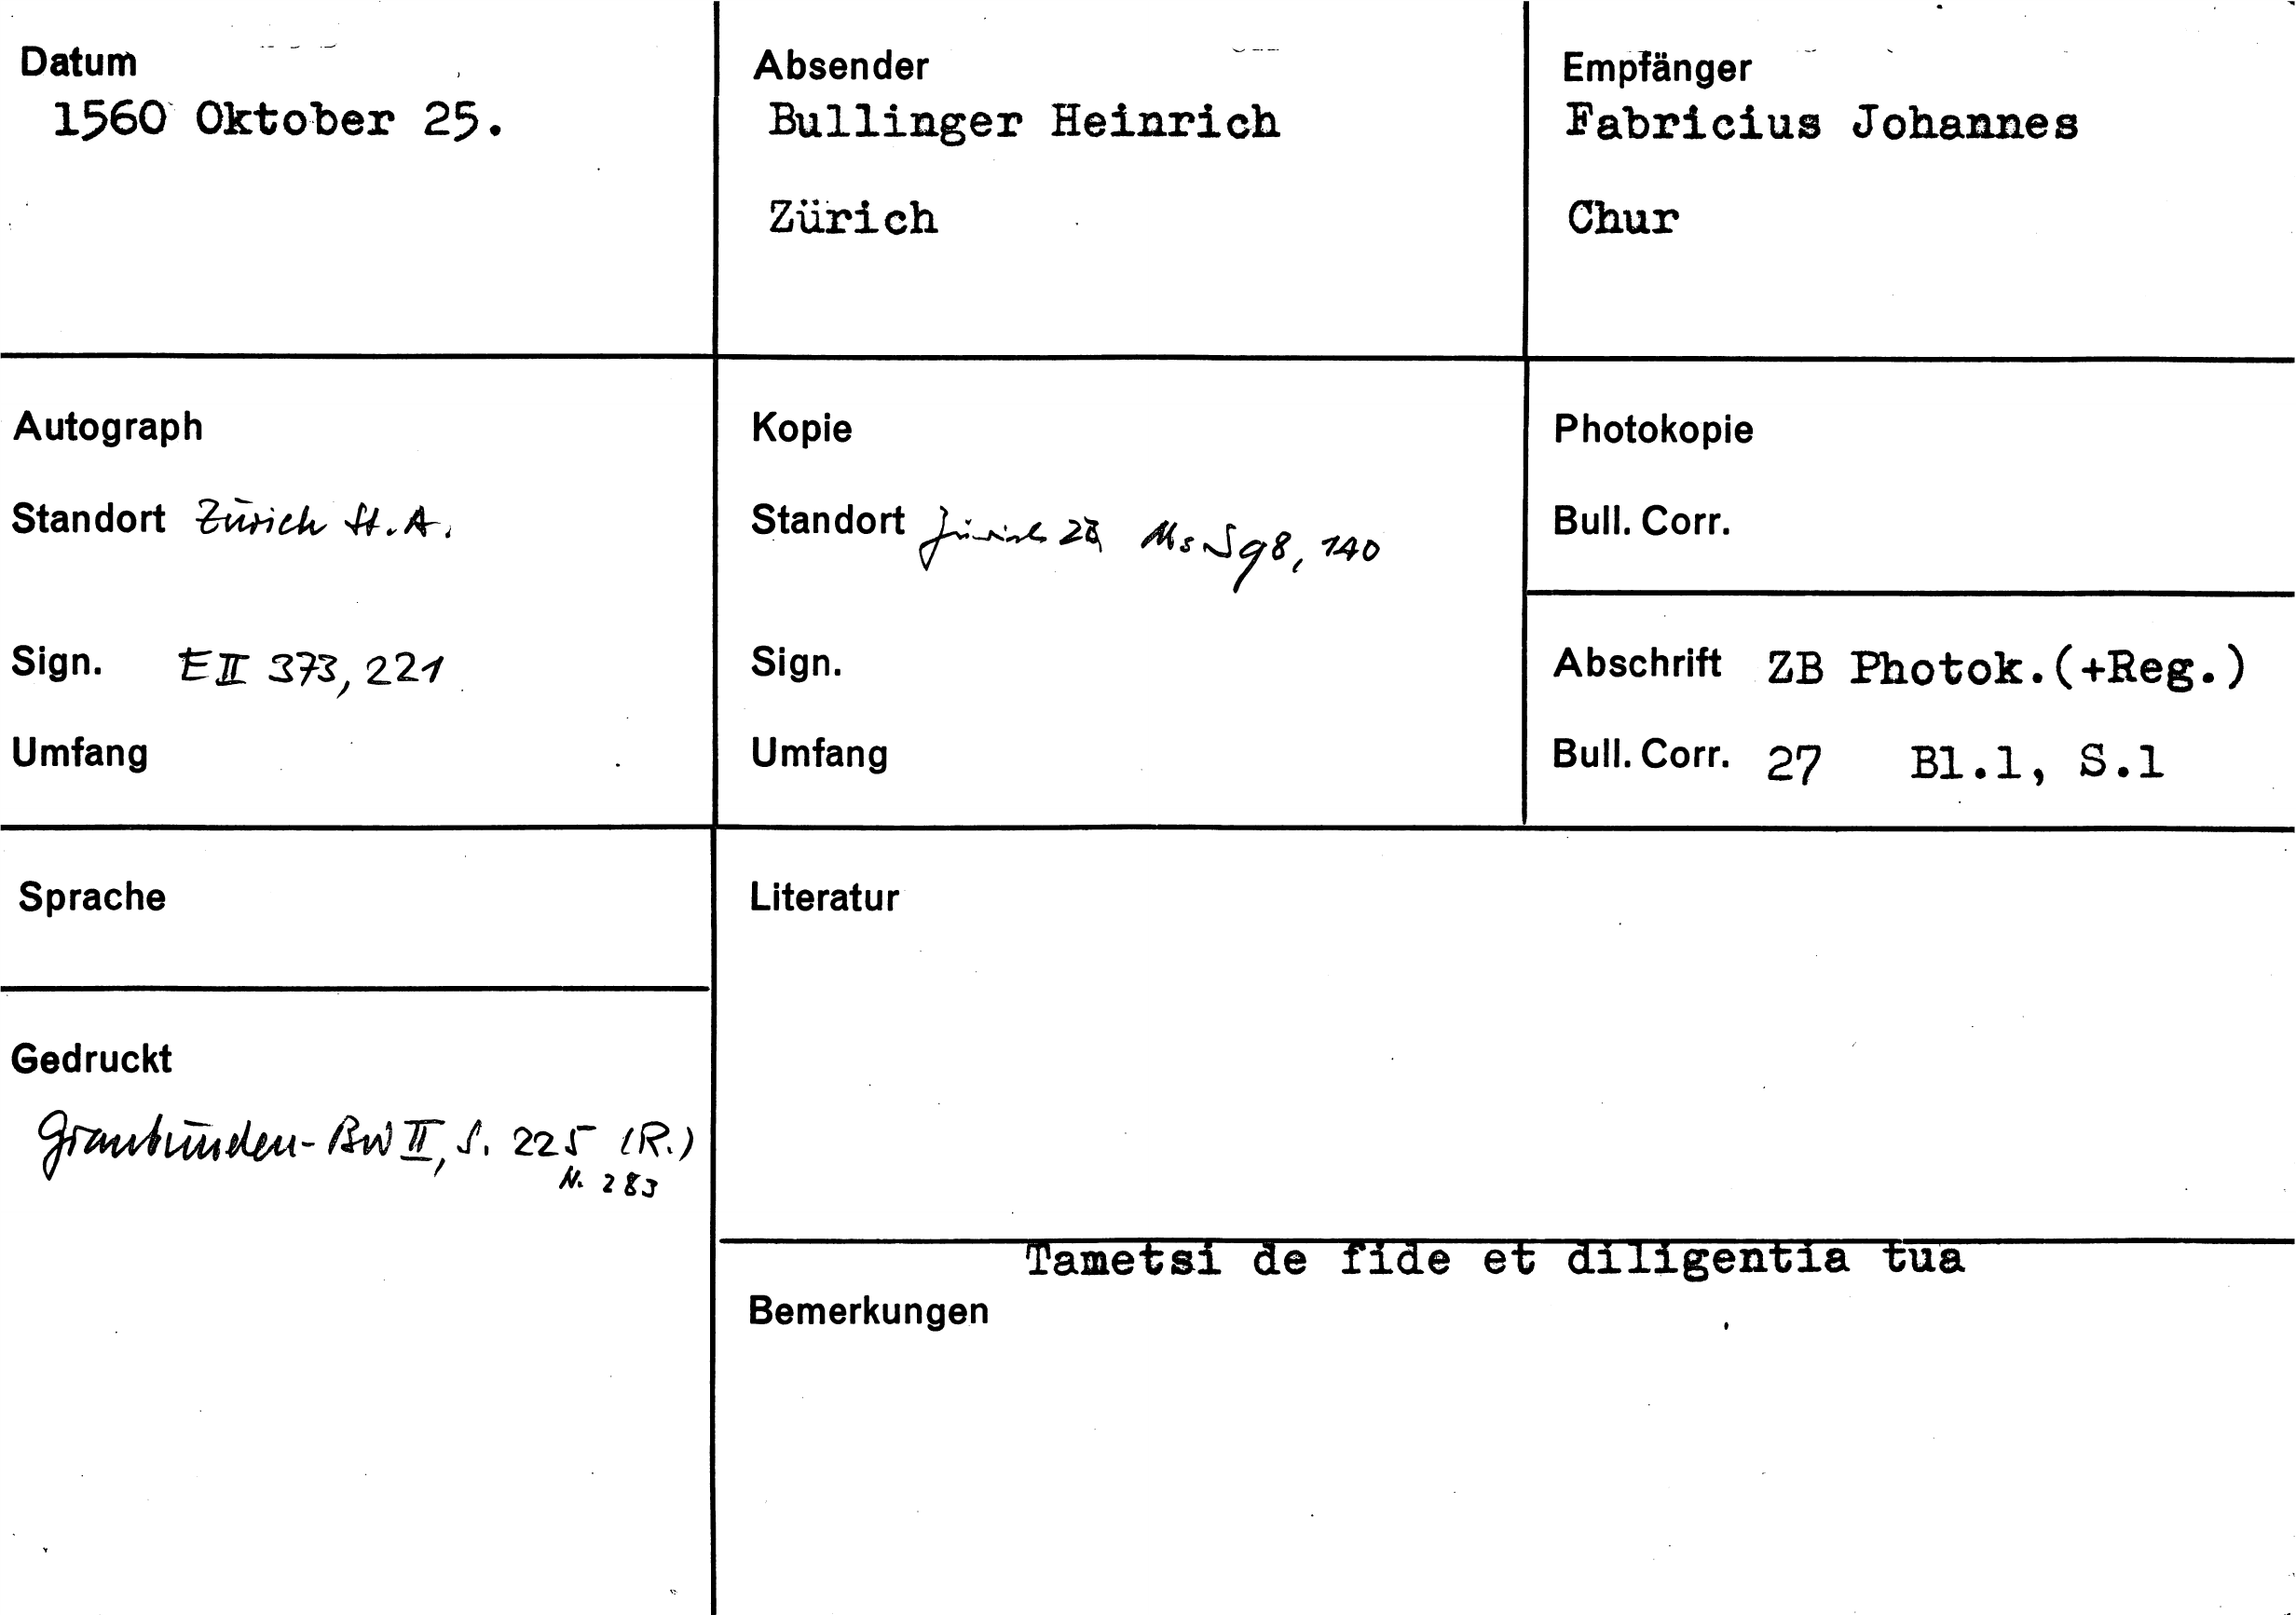 Datum
1560 Oktober 25.
Absender
Bullinger Heinrich
Zürich
Empfänger
Fabricius Johannes
Chur
Autograph
Standort Zürich St.A.
Sign. E II 373, 221
Umfang
Kopie
Standort Zürich ZB Ms S 98, 140
Sign.
Umfang
Photokopie
Bull. Corr.
Abschrift ZB Photok.(+Reg.)
Bull. Corr. 27 Bl.1, S.1
Sprache
Gedruckt
Graubünden-BW II, S. 225 (R.)
N. 283
Literatur
Tametsi de fide et diligentia tua
Bemerkungen